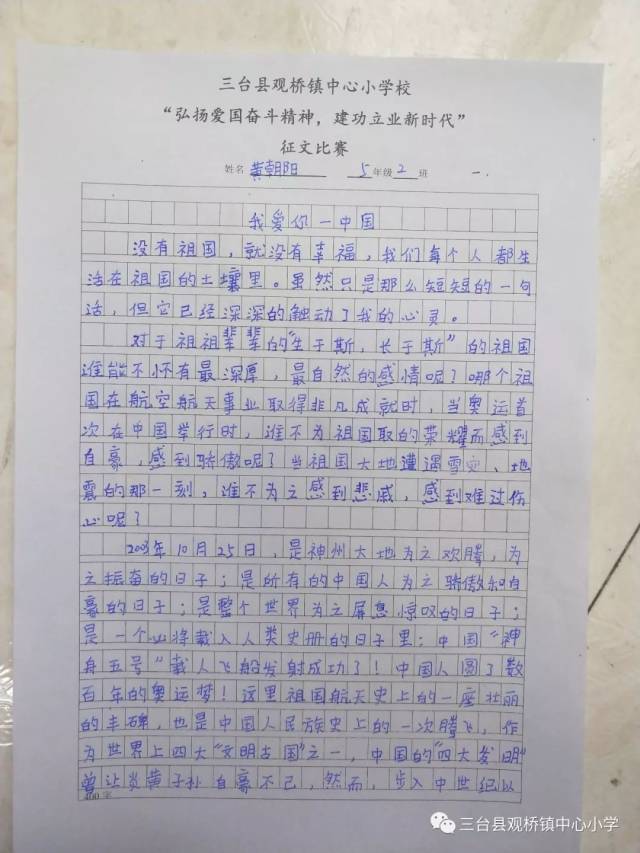 三台县观桥镇中心小学校
“弘扬爱国奋斗精神，建功立业新时代”
征文比赛
姓名 黄朝阳 5年级2班 一.
我爱你一中国
没有祖国，就没有幸福，我们每个人都生
活在祖国的土壤里。虽然只是那么短短的一句
话，但它已经深深的触动了我的心灵。
对于祖祖辈辈的“生于斯，长于斯”的祖国
谁能不怀有最深厚，最自然的感情呢？哪个祖
国在航空航天事业取得非凡成就时，当奥运首
次在中国举行时，谁不为祖国取的荣耀而感到
自豪，感到骄傲呢？当祖国大地遭遇雪灾、地
震的那一刻，谁不为之感到悲戚，感到难过伤
心呢？
2003年10月25日，是神州大地为之欢腾，为
之振奋的日子；是所有的中国人为之骄傲和自
豪的日子；是整个世界为之屏息惊叹的日子；
是一个必将载入人类史册的日子里：中国“神
舟五号“载人飞船发射成功了！中国人圆了数
百年的奥运梦！这里祖国航天史上的一座壮丽
的丰碑，也是中国人民族史上的一次腾飞，作
为世界上四大“文明古国”之一，中国的“四大发明”
曾让炎黄子孙自豪不已，然而，步入中世纪以
400字
三台县观桥镇中心小学